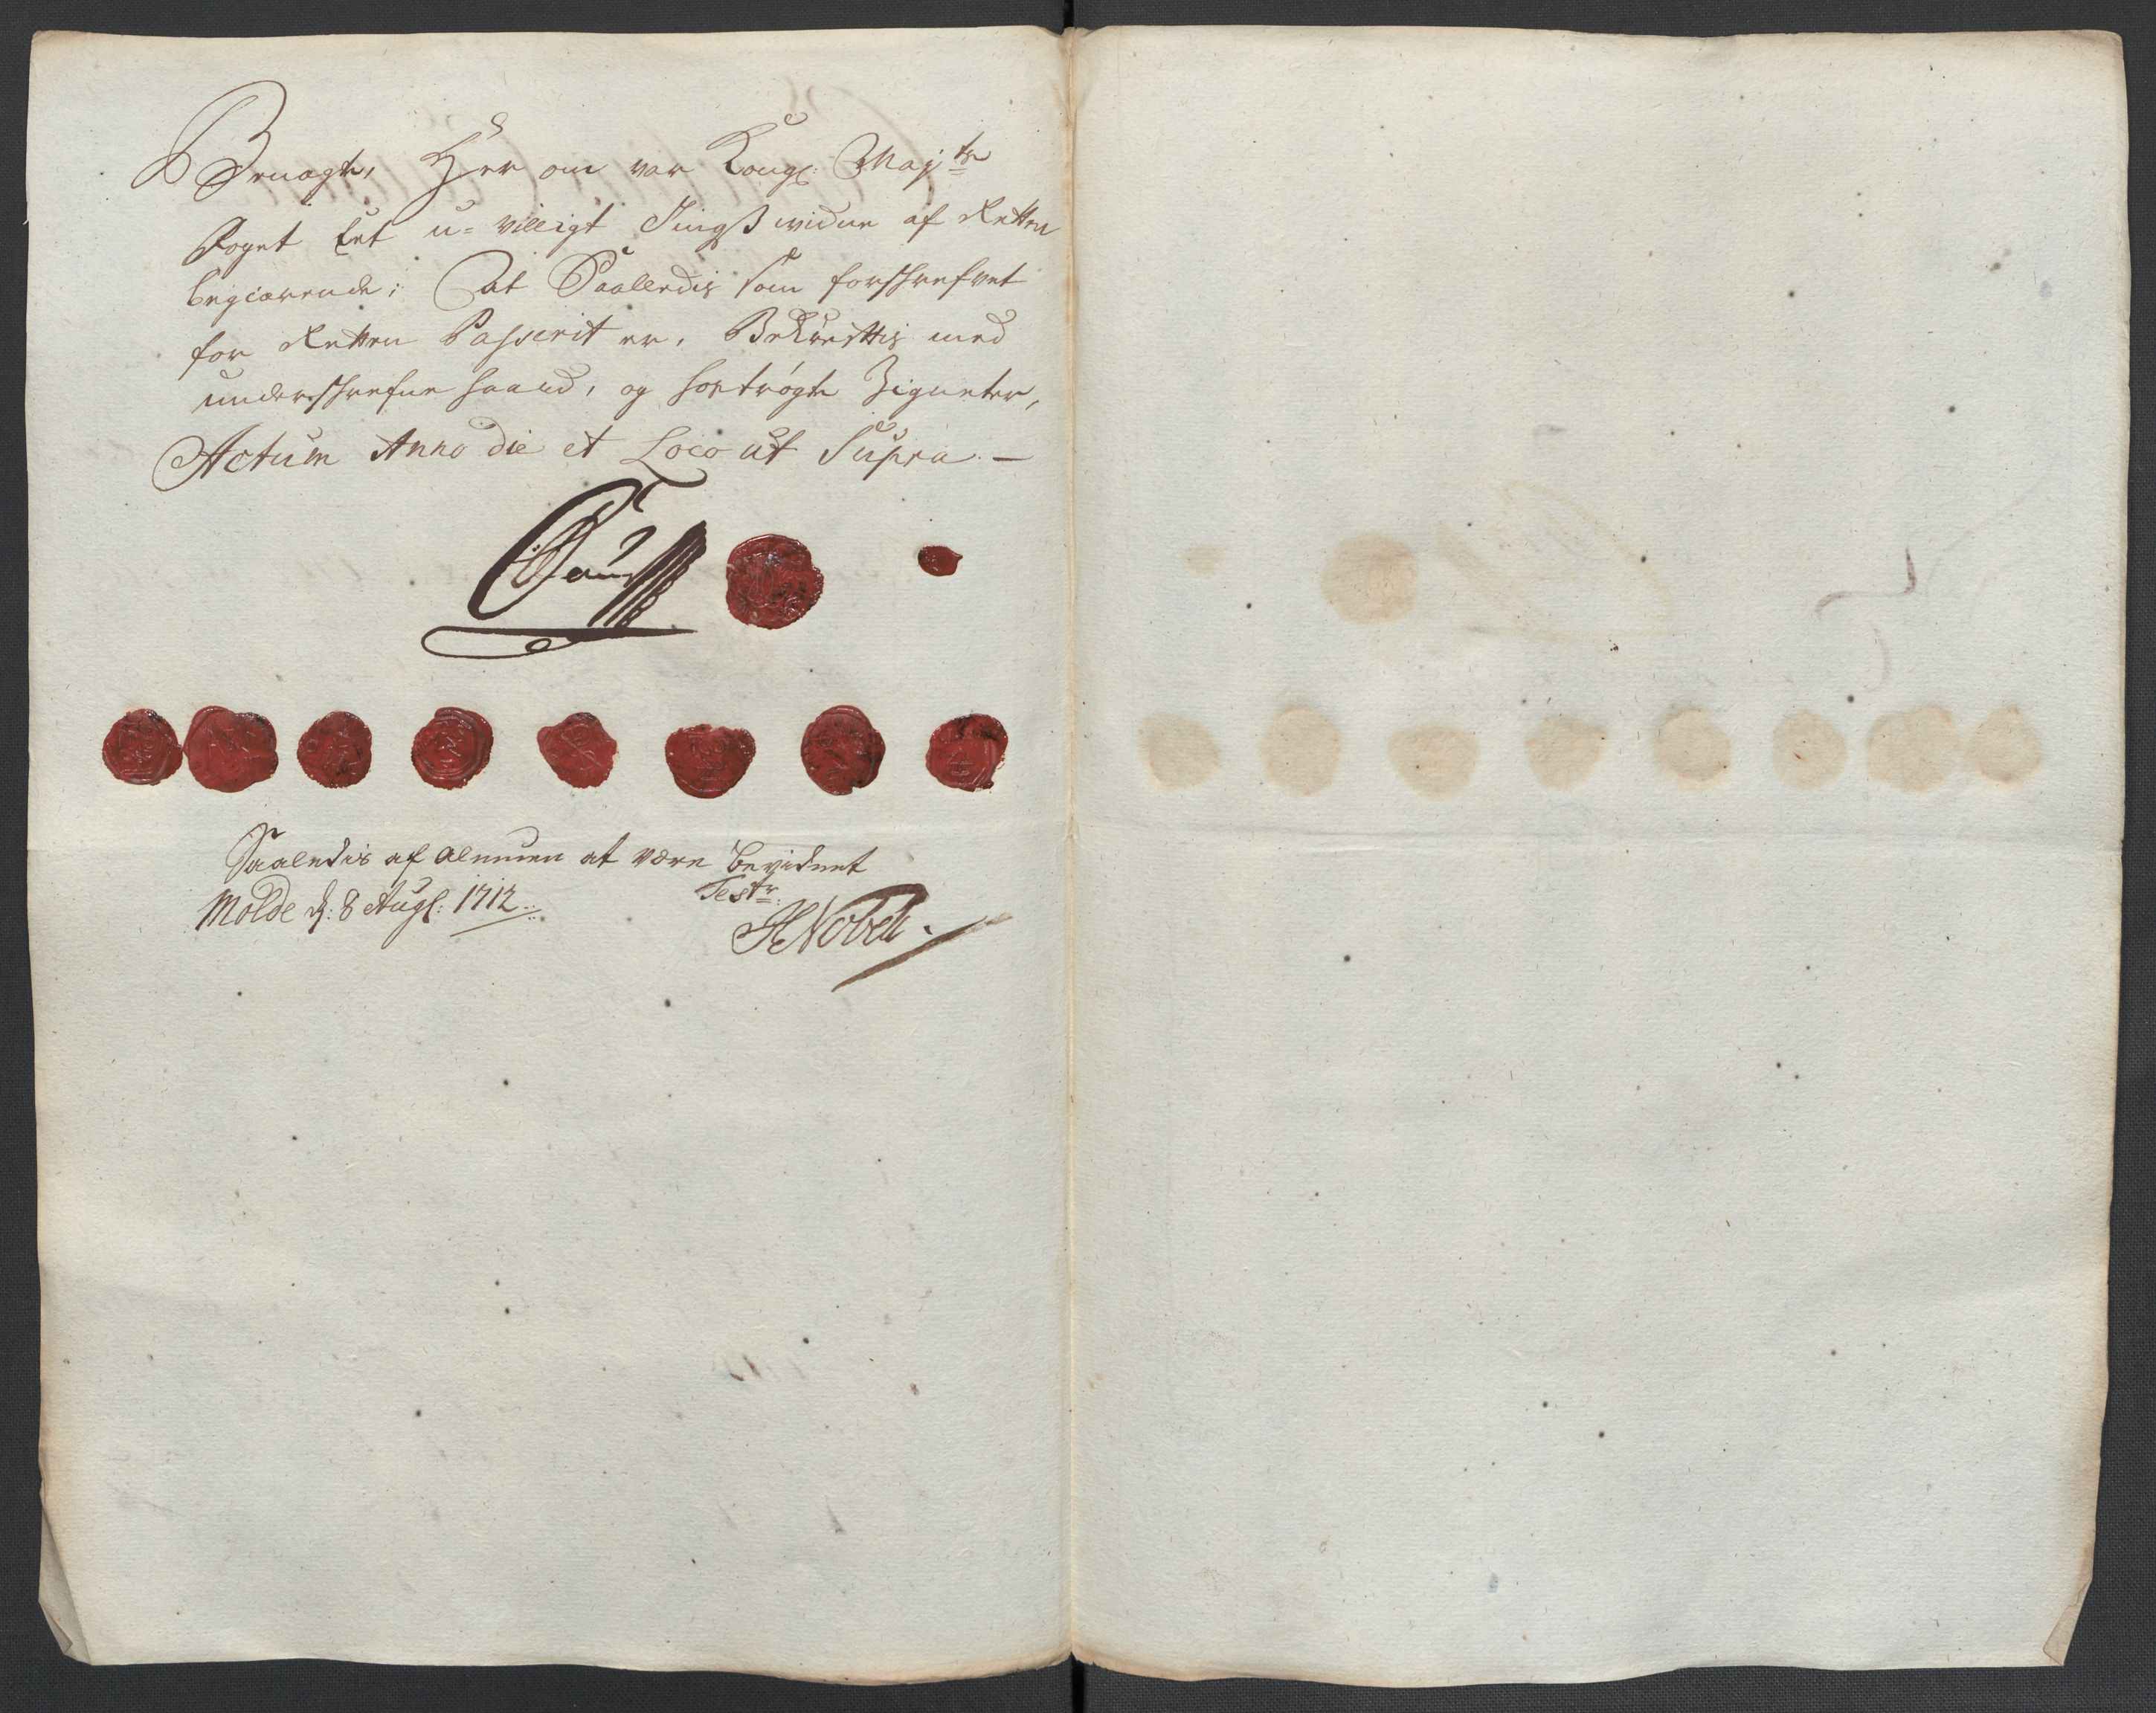 Benægte, Her om var Kongl: Maj:ts
Foget Eet u-villigt Tingsvidne af Retten
begiærende; At Saaledis som forschrefvet
for Retten Passerit er, Bekræftis med
underschrefne haand, og hostrøgte Zigneter,
Actum Anno die et Loco ut Supra —
Saaledis af almuen at være bevidnet
Molde d: 8 Aug: 1712
Testr:
HNobel.